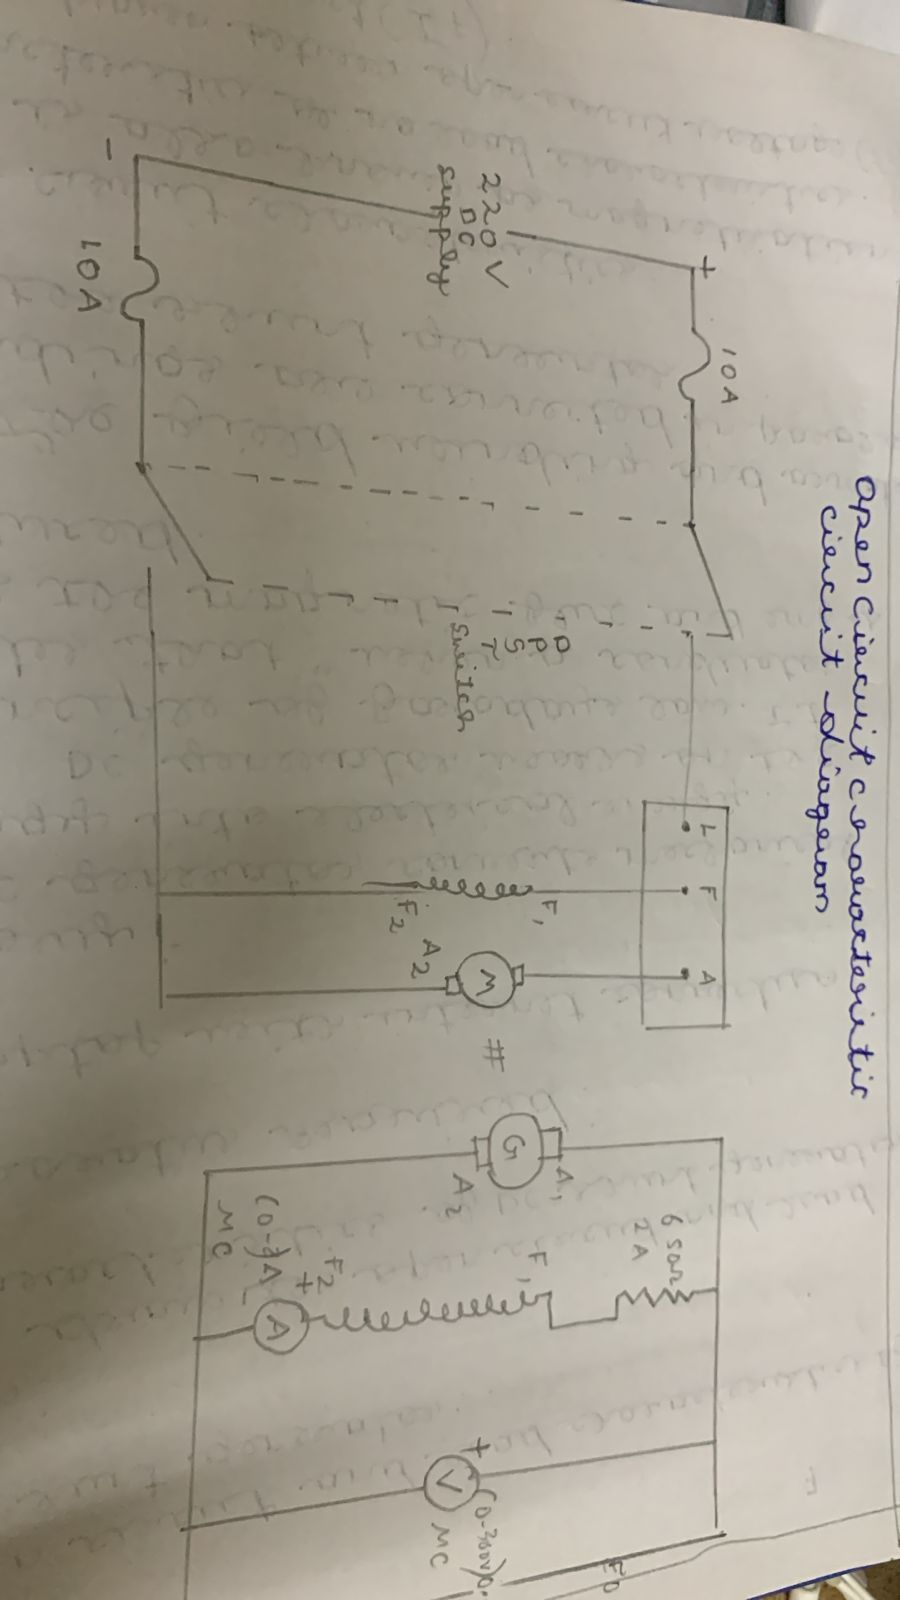 Open circuit characteristic
circuit diagram
10A
+
220V
DC
supply
-
10A
DPST
switch
L F A
F1
F2
M
A2
#
A1
G
A2
2A
F1
F2
+
A
MC
+
V
(0-300V)
MC